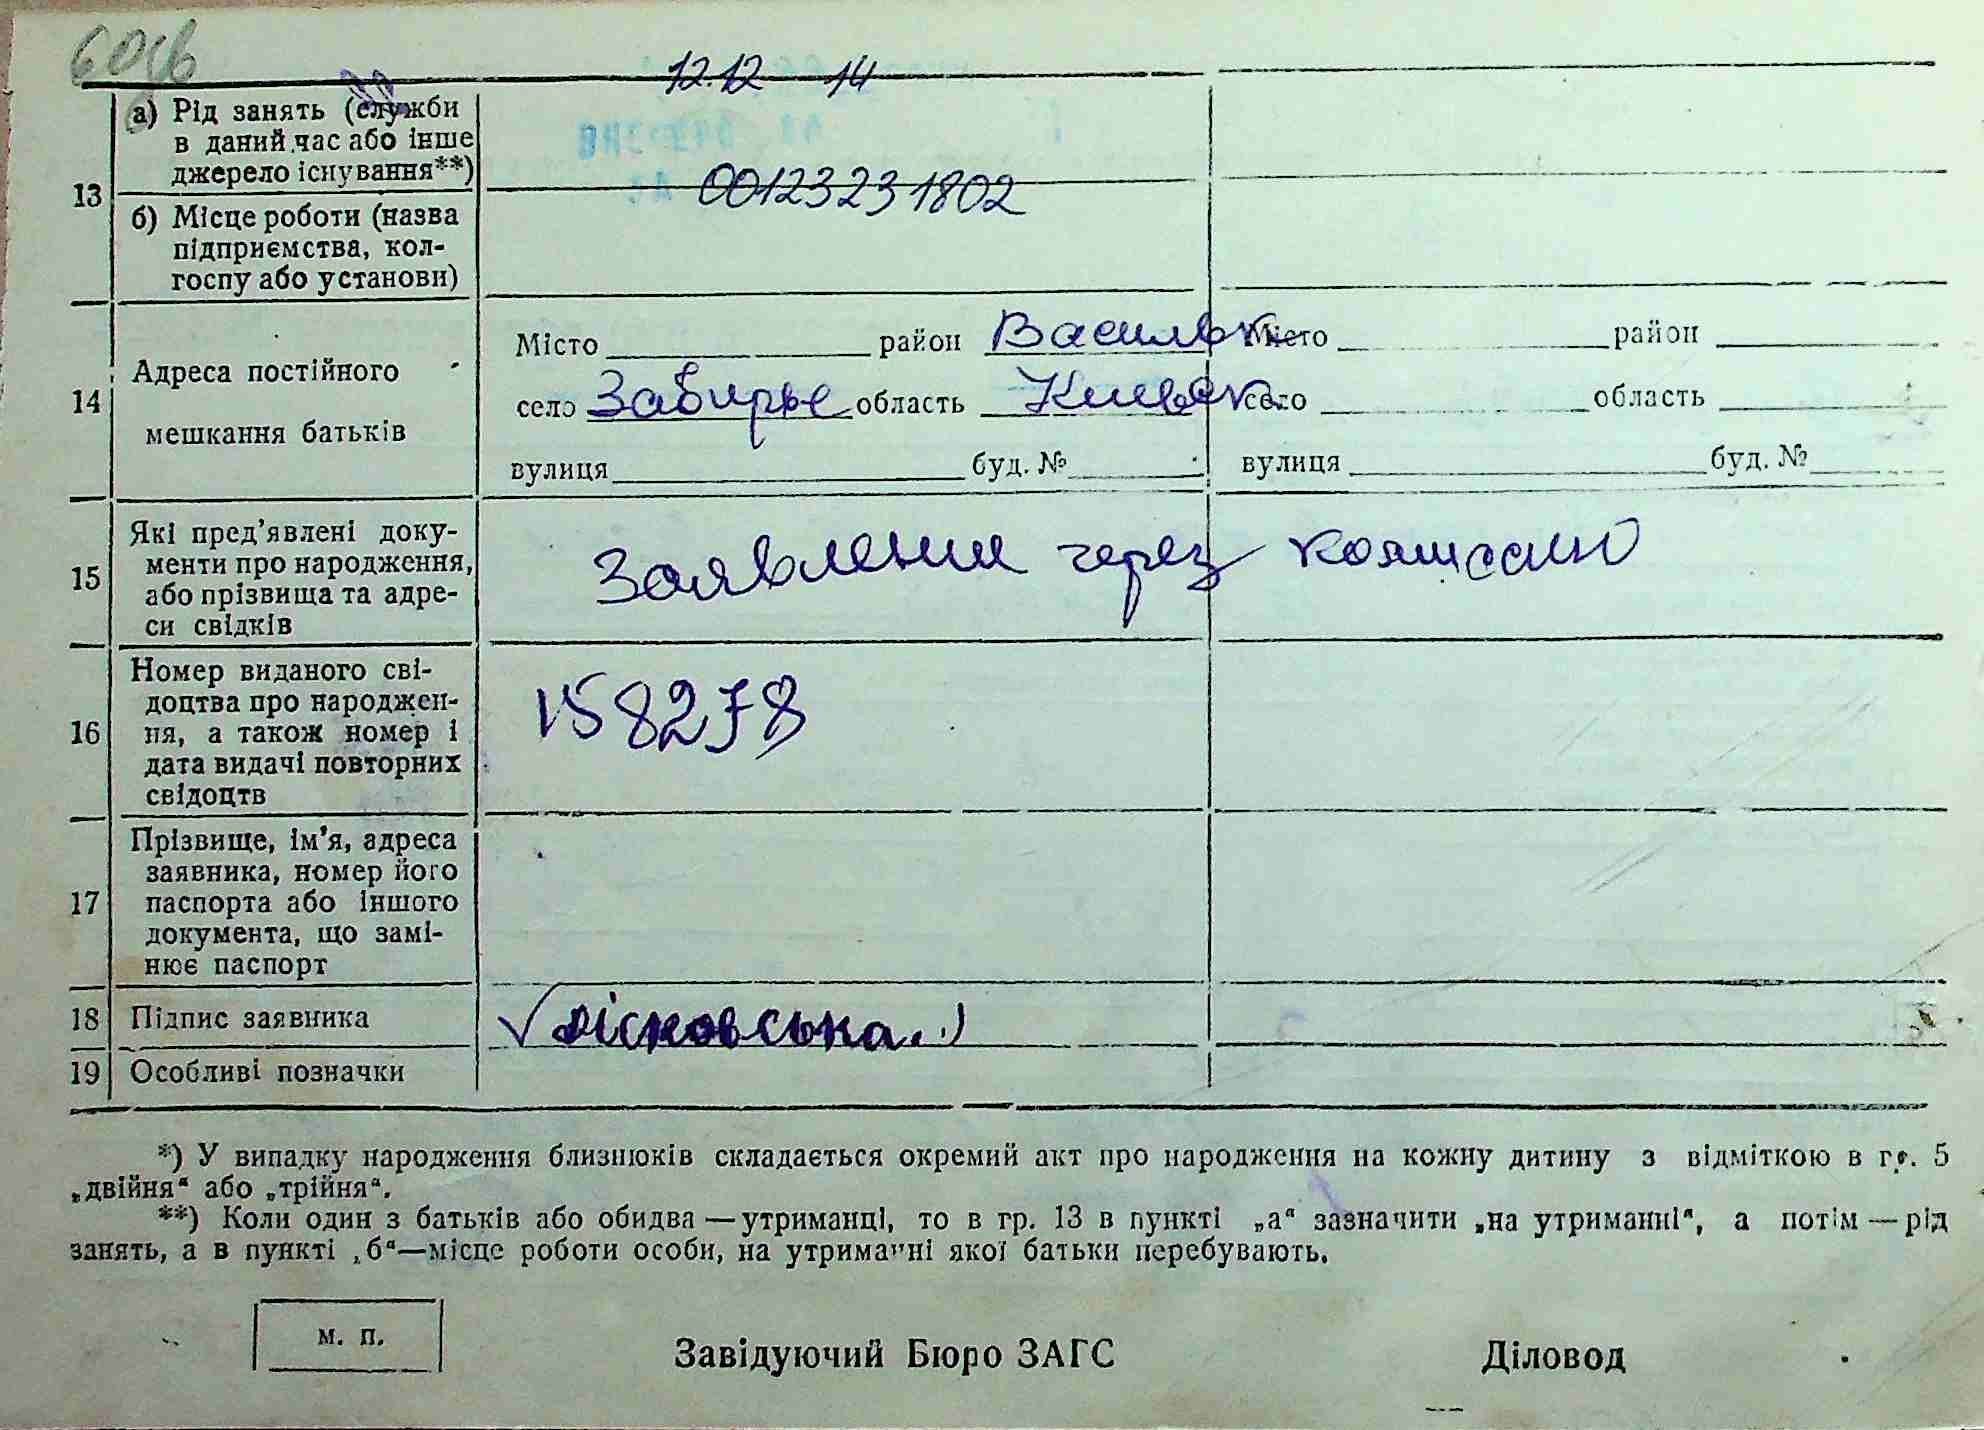 12.12 14
13
а) Рід занять (служби
в даний час або інше
джерело існування**)
00123231802
б) Місце роботи (назва
підприємства, кол-
госпу або установи)
14
Адреса постійного
мешкання батьків
Місто район Васильк. Місто район
село Забирье область Киевск. село область
вулиця буд. № вулиця буд. №
15
Які пред’явлені доку-
менти про народження,
або прізвища та адре-
си свідків
Заявление через комиссию
16
Номер виданого сві-
доцтва про народжен-
ня, а також номер і
дата видачі повторних
свідоцтв
158278
17
Прізвище, ім’я, адреса
заявника, номер його
паспорта або іншого
документа, що замі-
нює паспорт
18 Підпис заявника
19 Особливі позначки
*) У випадку народження близнюків складається окремий акт про народження на кожну дитину з відміткою в гр. 5
„двійня“ або „трійня“.
**) Коли один з батьків або обидва — утриманці, то в гр. 13 в пункті „а“ зазначити „на утриманні“, а потім — рід
занять, а в пункті „б“—місце роботи особи, на утриманні якої батьки перебувають.
м. п.
Завідуючий Бюро ЗАГС Діловод